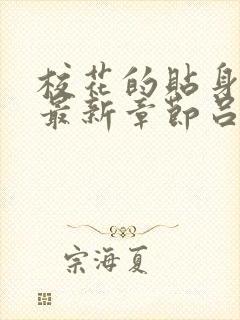 校花的貼身
最新章節呂
宗海夏